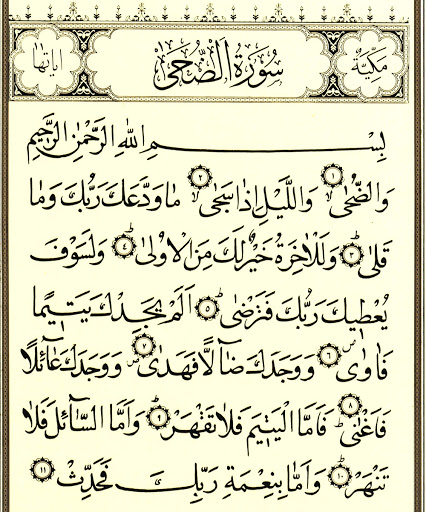 مكية سورة الضحى اياتها
بِسْمِ اللهِ الرَّحْمٰنِ الرَّحِيمِ
وَالضُّحٰى ١ وَاللَّيْلِ اِذَا سَجٰى ٢ مَا وَدَّعَكَ رَبُّكَ وَمَا
قَلٰى ٣ وَلَلْاٰخِرَةُ خَيْرٌ لَكَ مِنَ الْاُولٰى ٤ وَلَسَوْفَ
يُعْطِيكَ رَبُّكَ فَتَرْضٰى ٥ اَلَمْ يَجِدْكَ يَتِيمًا
فَاٰوٰى ٦ وَوَجَدَكَ ضَآلًّا فَهَدٰى ٧ وَوَجَدَكَ عَآئِلًا
فَاَغْنٰى ٨ فَاَمَّا الْيَتِيمَ فَلَا تَقْهَرْ ٩ وَاَمَّا السَّآئِلَ فَلَا
تَنْهَرْ ١٠ وَاَمَّا بِنِعْمَةِ رَبِّكَ فَحَدِّثْ ١١